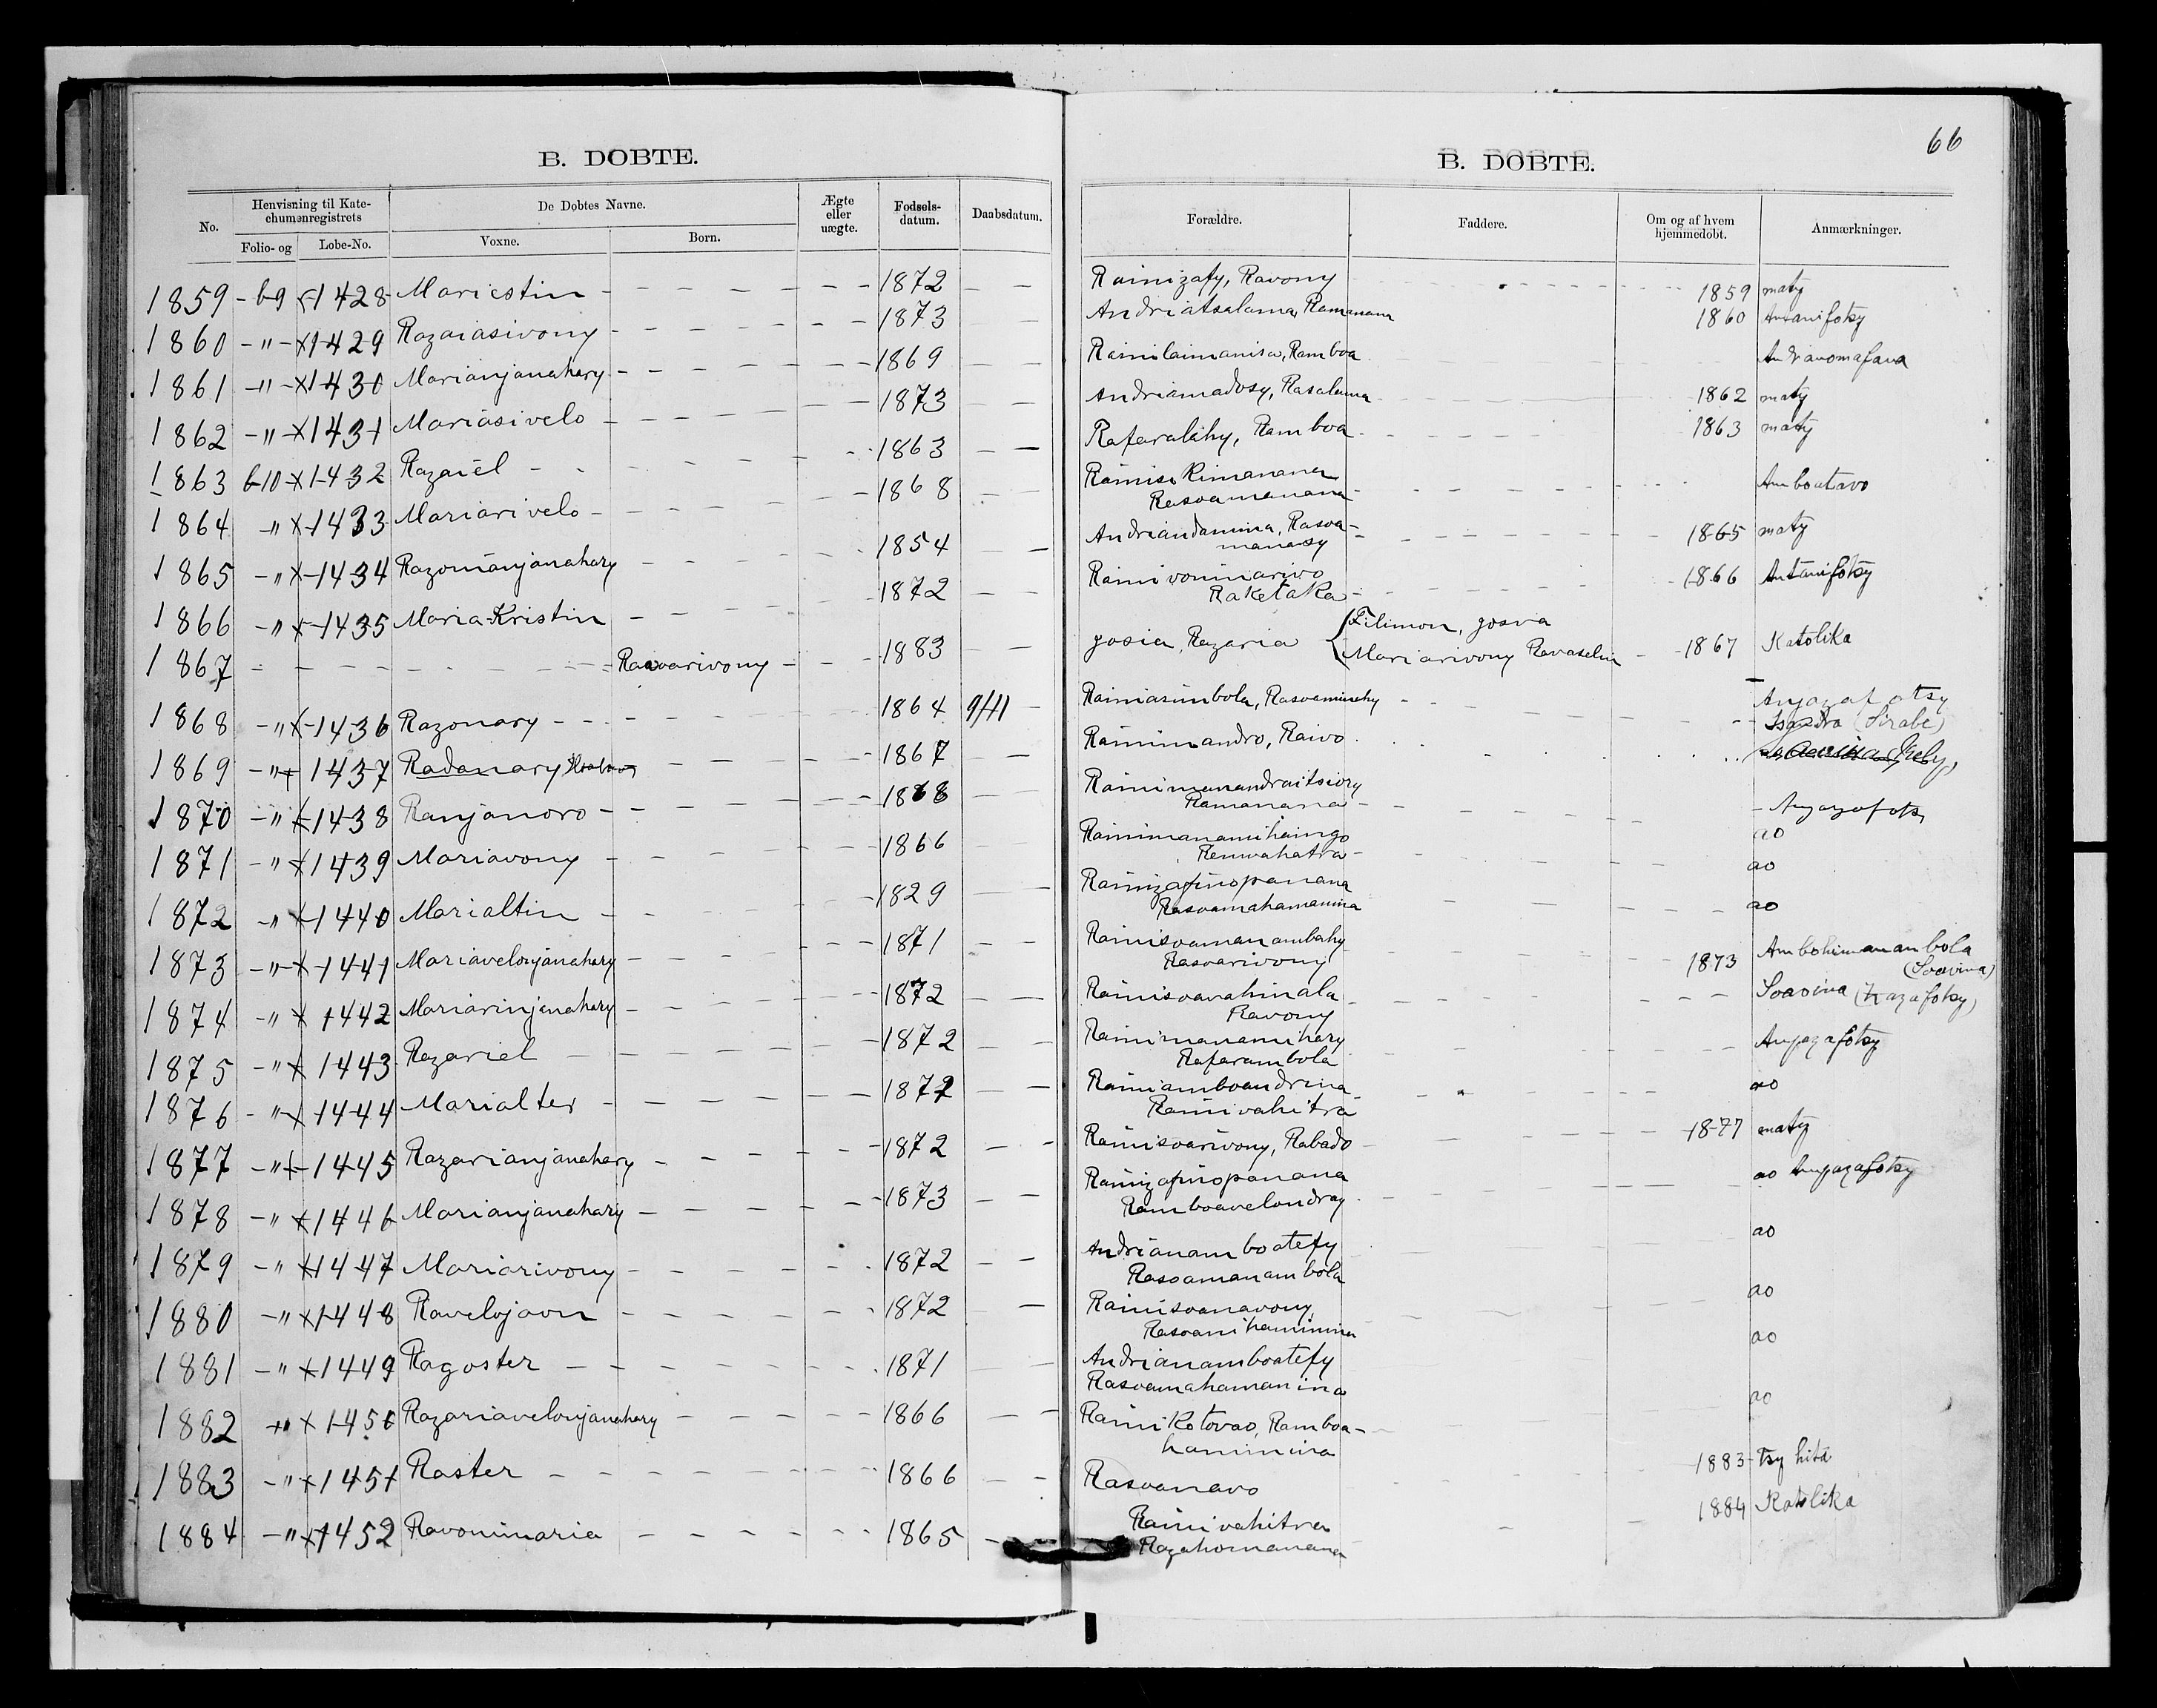 66
B. DOBTE.
B. DOBTE.
No. Henvisning til Katechumenregistrets Folio- og Lobe-No. De Dobtes Navne. Voxne. Born. Ægte eller uægte. Fodsels-datum. Daabsdatum. Forældre. Faddere. Om og af hvem hjemmedobt. Anmærkninger.
1859 - 69 x 1428 Mariestin - 1872 - Rainizafy, Ravony - 1859 maty
1860 - " - x 1429 Razaiasivony - 1873 - Andriatsalama, Ramanana 1860 Antanifotsy
1861 - " - x 1430 Marianjanahary - 1869 - Rainilaimanisa, Ramboa - Andranomafana
1862 - " - x 1431 Mariasivelo - 1873 - Andriamadosy, Rasalama - 1862 maty
1863 610 x 1432 Razaiel - 1863 - Rafaralahy, Ramboa - 1863 maty
1864 " x 1433 Mariarivelo - 1868 - Rainisi Kimanana
Rasoamanana - Amboatavo
1865 - " x 1434 Razomanjanahary 1854 - Andriandamina, Rasoa-
manasy - 1865 maty
1866 - " x 1435 Maria Kristin - 1872 - Rainivoninarivo
Raketaka - 1866 Antanifotsy
1867 - Rasoarivony - 1883 - Josia, Razaria { Filimon, Josva
Mariarivony Ravaselin - 1867 Katolika
1868 - " x 1436 Razonary - 1864 9/11 - Rainiasimbola, Rasoamisehy - Anjazafotsy
1869 - " x 1437 Radanary - 1867 - Rainimandro, Raivo - Isandra (Sirabe)
1870 - " x 1438 Ranjanoro - 1868 - Rainimanandraitsiory
Ramanana - Anjazafots
1871 - " x 1439 Mariavony - 1866 - Rainimanamihaingo
Renivahatra - ao
1872 - " x 1440 Marialtin - 1829 - Rainizafinopanana
Rasoamahamanina ao
1873 - " - x 1441 Mariavelonjanahary - 1871 - Rainisoamanambahy
Rasoarivony - 1873 Ambohimanambola
(Soavina)
1874 - " x 1442 Mariarinjanahary - 1872 - Rainisoavahinala
Ravony - Soavina (Hazafotsy)
1875 - " x 1443 Razariel - 1872 - Rainimanamihary
Rafarambola - Anjazafotsy
1876 - " x 1444 Marialter - 1872 - Rainiamboandrina
Rainivahitra - ao
1877 - " x 1445 Razarianjanahary - 1872 - Rainisoarivony, Rabado - 1877 maty
1878 - " x 1446 Marianjanahary - 1873 - Rainizafinopanana
Ramboavelondray - ao Anjazafotsy
1879 - " x 1447 Mariarivony - 1872 - Andrianamboatefy
Rasoamanambola ao
1880 - " x 1448 Ravelojaon - 1872 - Rainisoanavony,
Rasoanihaminina ao
1881 - " x 1449 Ragoster - 1871 - Andrianamboatefy
Rasoamahamanina ao
1882 " x 1450 Razariavelonjanahary - 1866 - Rainikotovao, Ramboa-
haminina ao
1883 - " x 1451 Raster - 1866 - Rasoanavo - 1883 Tsy hita
1884 - " x 1452 Ravoninaria - 1865 - Rainivahitra
Razahomanana - 1884 Katolika